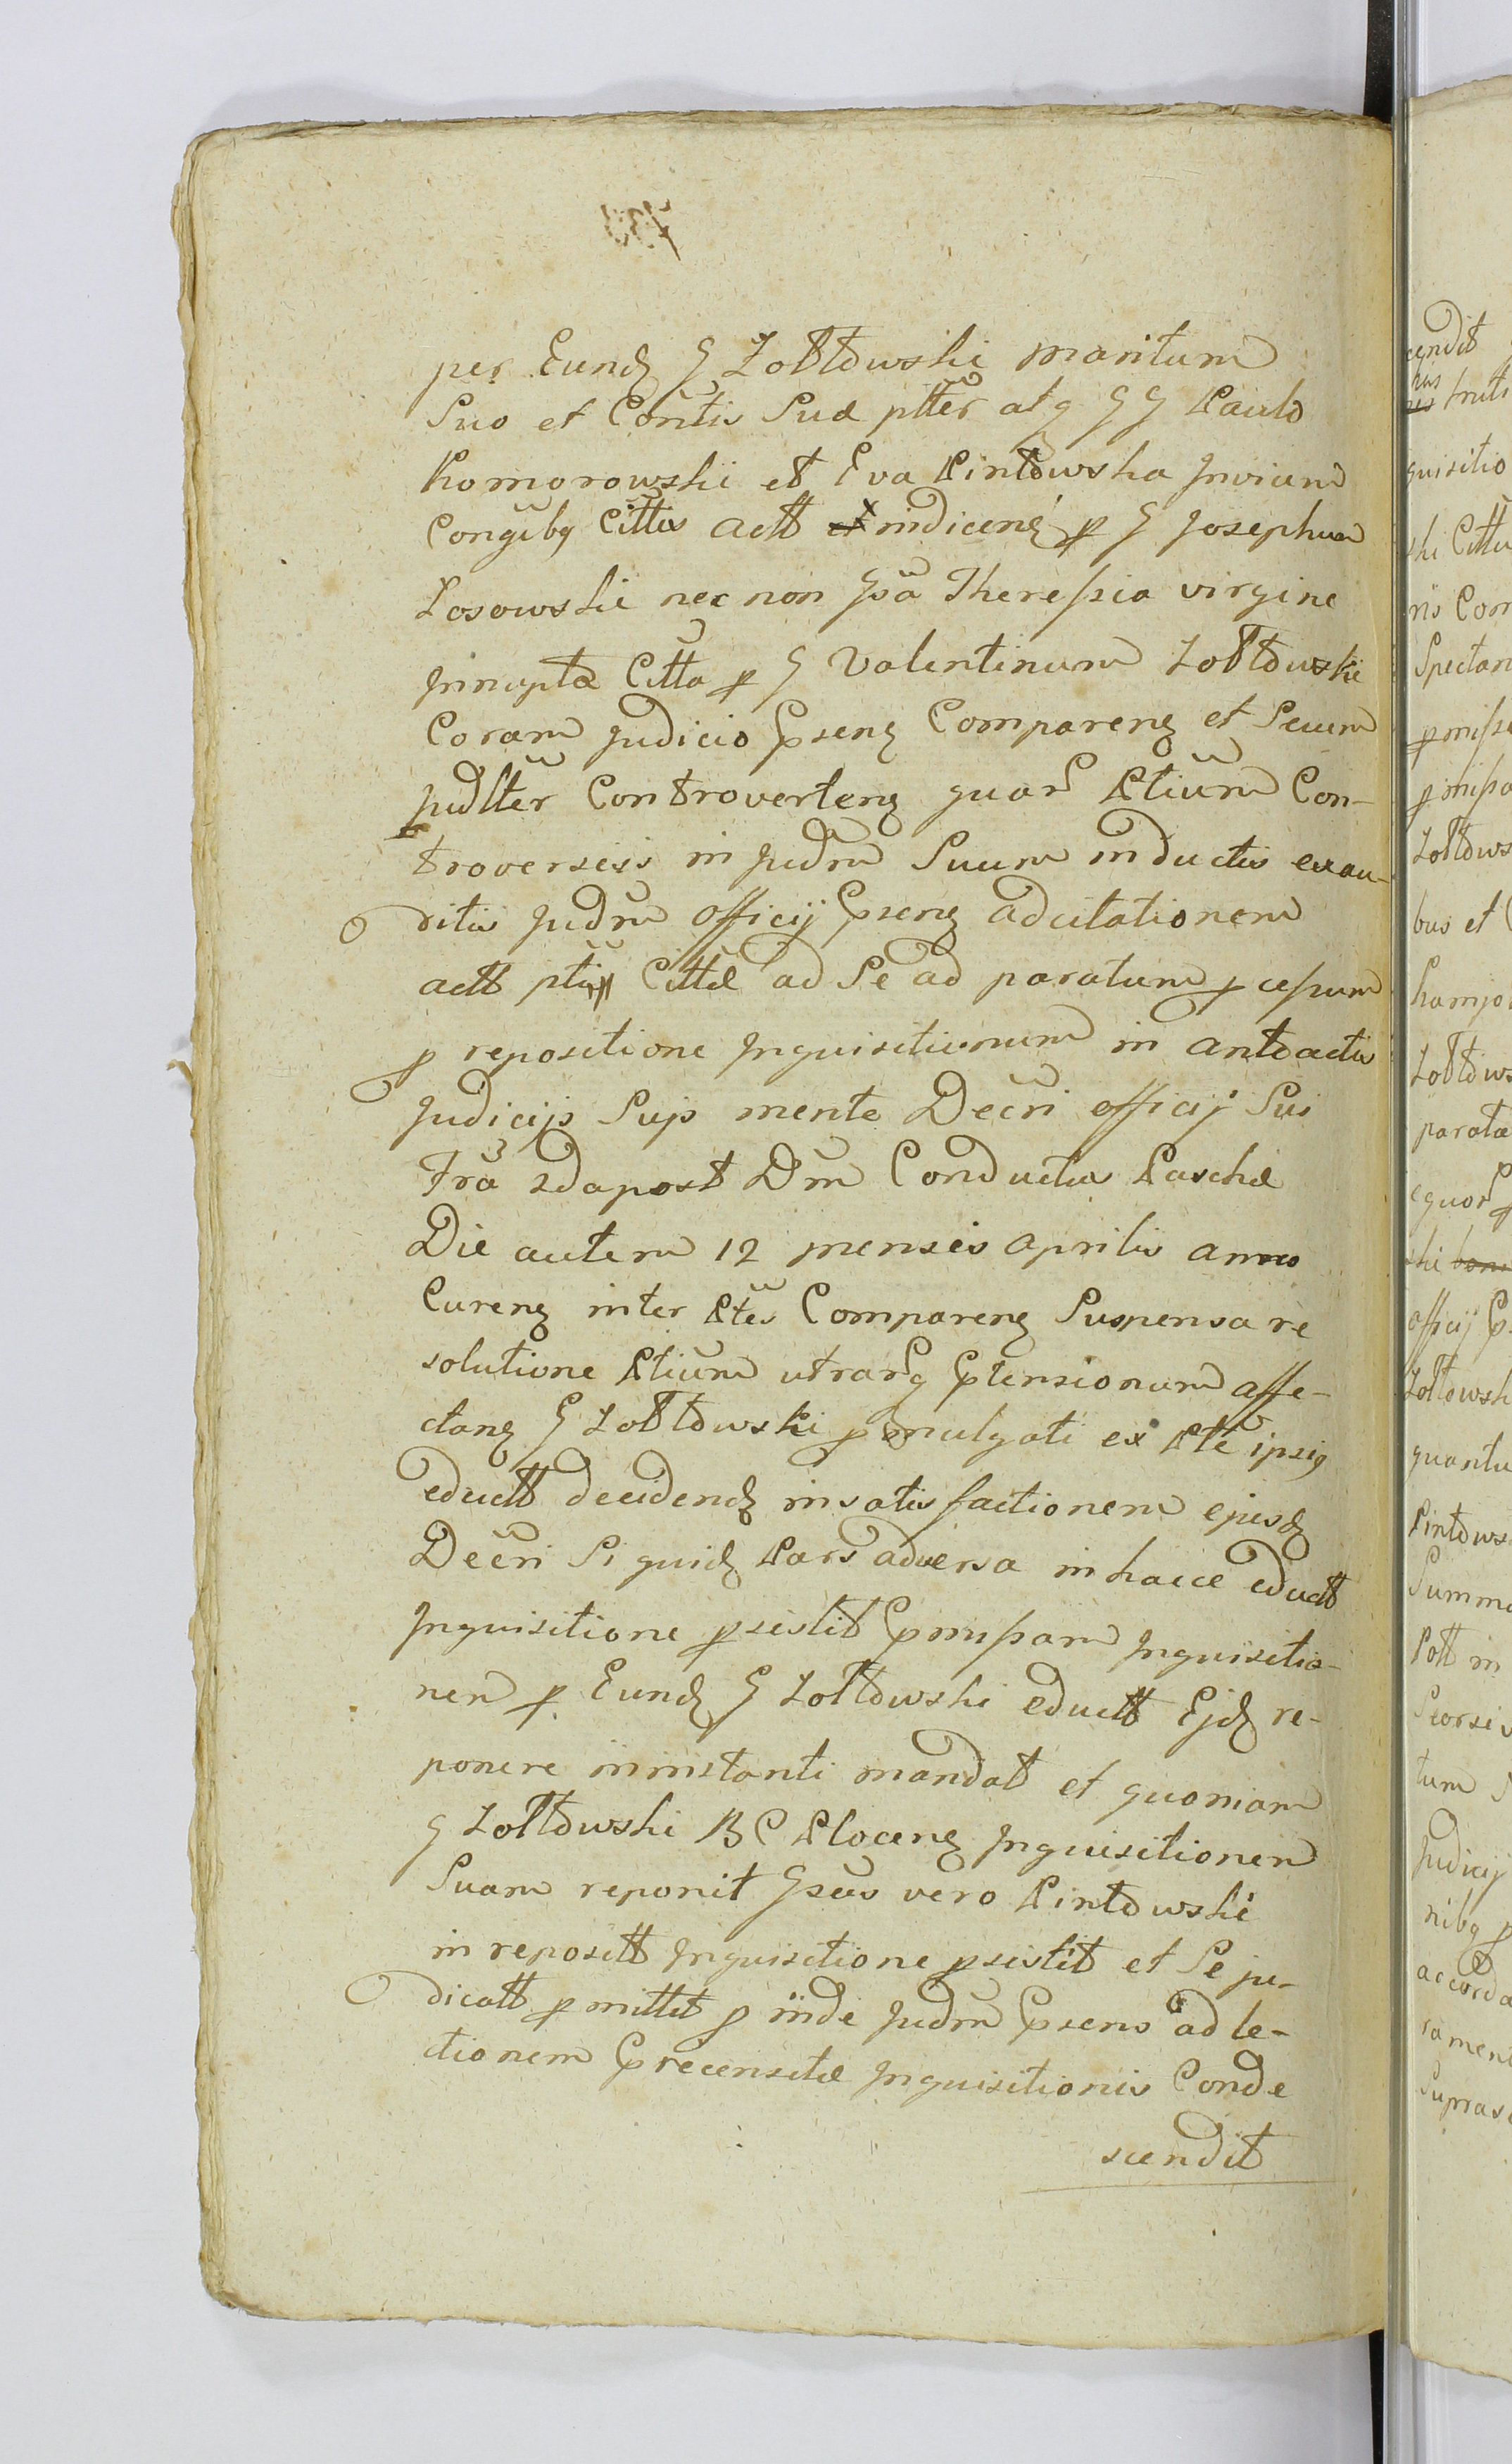 per Eundz G Zołtowski maritum
Suo et Contis Sua ptter atq GG Paulo
Komorowski et Eva Pintowska Invicem
Congibq Cittis actt indiceng p G Josephum
Losowski nec non Gsa Theressia virgine
Innupta Citta p G Valentinum Zołtowski
Coram Judicio Psenz Comparenz et Secum
Judltter Controvertenz quar Ptium Con-
troversiis in Judm Suum inductis exau-
ditis Judm officij Psenz adcitationem
actt ptis Cittæ ad Se ad paratum pcessum
p repositione Inquisitionum in antoactis
Judicijs Sujs mente Decri officij Sui
Fra 2da post Dm Conductus Paschæ
Die autem 12 mensis Aprilis anno
Curenz inter Ptes Comparenz Suspensa re
solutione Ptium utrarq Ptensionum affe-
ctanz G Zołtowski pmulgati ex Pte ipsiq
eductt decidendz in satisfactionem ejusdz
Decri Si quidz Pars adversa in haece eductt
Inquisitione psistit Pmissam Inquisitio-
nem p Eundz G Zołtowski eductt Ejdz re-
ponere in instanti mandat et quoniam
G Zołtowski BC Plocenz Inquisitionem
Suam reponit Gsus vero Pintowski
in repositt Inquisitione psistit et Se ju-
dicatt pmittit p iinde Judm Psens ad le-
ctionem Precensitæ Inquisitionis Conde
scendit
cendit
truti
quisitio
ski Citta
ris Com
Spectan
pmissa
pmissa
Zołtows
bus et
Zołtows
parata
equor p
ski
officij P
Zołtowsk
quantu
Pintows
Summa
Pott in
Seorsiv
tum
Judicij
nibq p
accorda
ramen
Supras